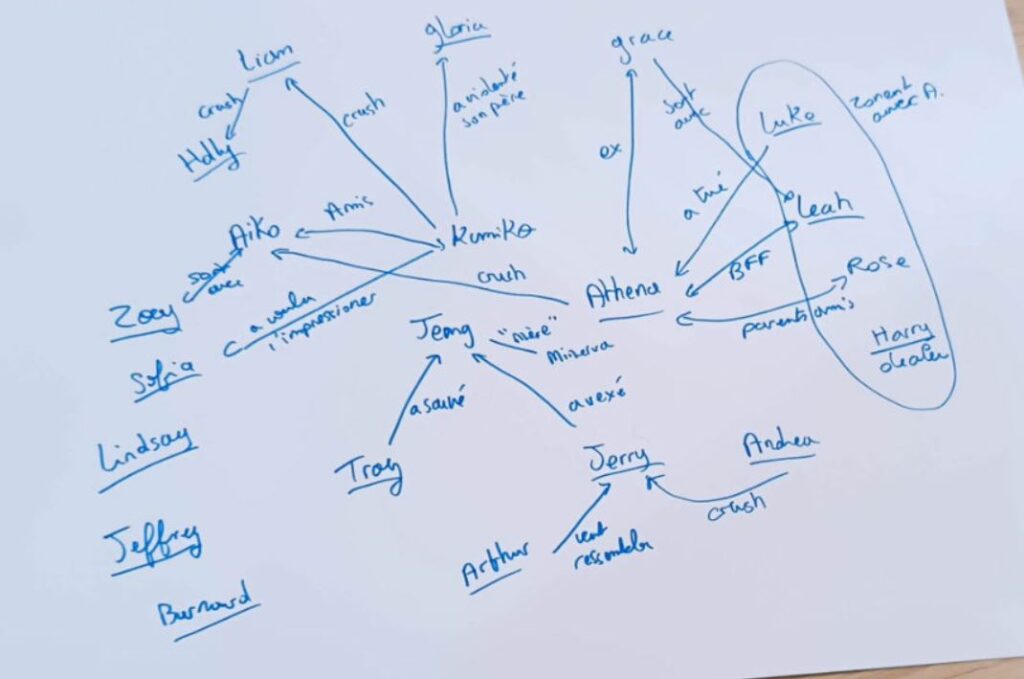 gloria
Liam
grace
crush
crush
a violenté
son père
sort
avec
Luke
zonent
avec A.
Holly
ex
a tué
Leah
Amis
Aiko
Kumiko
BFF
Rose
sort
avec
crush
Athena
Zoey
a voulu
l'impressionner
Jenny
"mère"
Minerva
parents amis
Harry
dealer
Sofia
a sauvé
a vexé
Lindsay
Troy
Jerry
Andrea
crush
Jeffrey
Arthur
veut
ressembler
Burnard